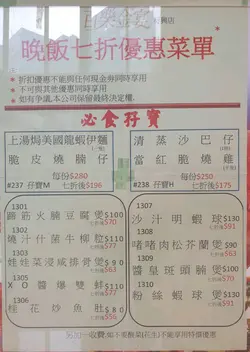 晚飯七折優惠菜單
• 折扣優惠不能與任何現金劵同時享用
• 不可與其他優惠同時享用
• 如有爭議,本公司保留最終決定權.
必食孖寶
上湯焗美國龍蝦伊麵
脆皮燒腩仔
每份$280
#237 孖寶M 七折後$196
清蒸沙巴仔
當紅脆燒雞
每份$250
#238 孖寶H 七折後$175
1301
蹄筋火腩豆腐煲
七折後$70
1302
燒汁什菌牛柳粒
七折後$77
1303
娃娃菜浸咸排骨煲
七折後$63
1305
XO醬爆雙蚌
七折後$77
1306
桂花炒魚肚
1307
沙汁明蝦球 $130
七折後$91
1308
啫啫肉松芥蘭煲 $90
七折後$63
1309
醬皇斑頭腩
七折後$70
1310
粉絲蝦球煲 $130
七折後$91